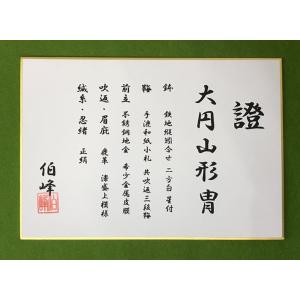 證
大円山形冑
鉢 鉄地縦矧合せ 二方白星付
鞠 手漉和紙小札 共吹返三段鞠
前立 不銹鋼地金 希少金属皮膜
吹返・眉庇 疲革 漆盛上模様
縅糸・忍緒 正絹
伯峰